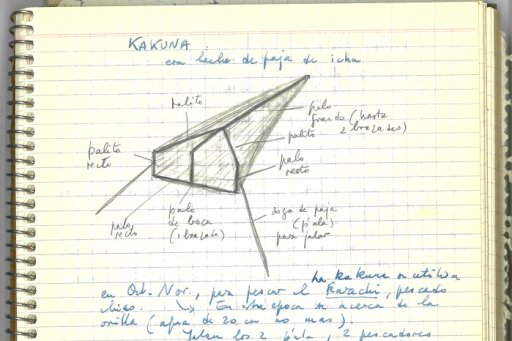 KAKUNA
con lecho de paja de ichu
palito
palo
grande (hasta
2 brazadas)
palito
palito
recto
palo
recto
palo
recto
palo
de boca
(1 brazada)
soga de paja
(p'ala)
para jalar
La kakuna se utiliza
en Oct. Nov., para pescar el karachi, pescado
chico. → En esa epoca se acerca de la
orilla (agua de 20 cm no mas).
Jalan los 2 p'ala, 2 pescadores